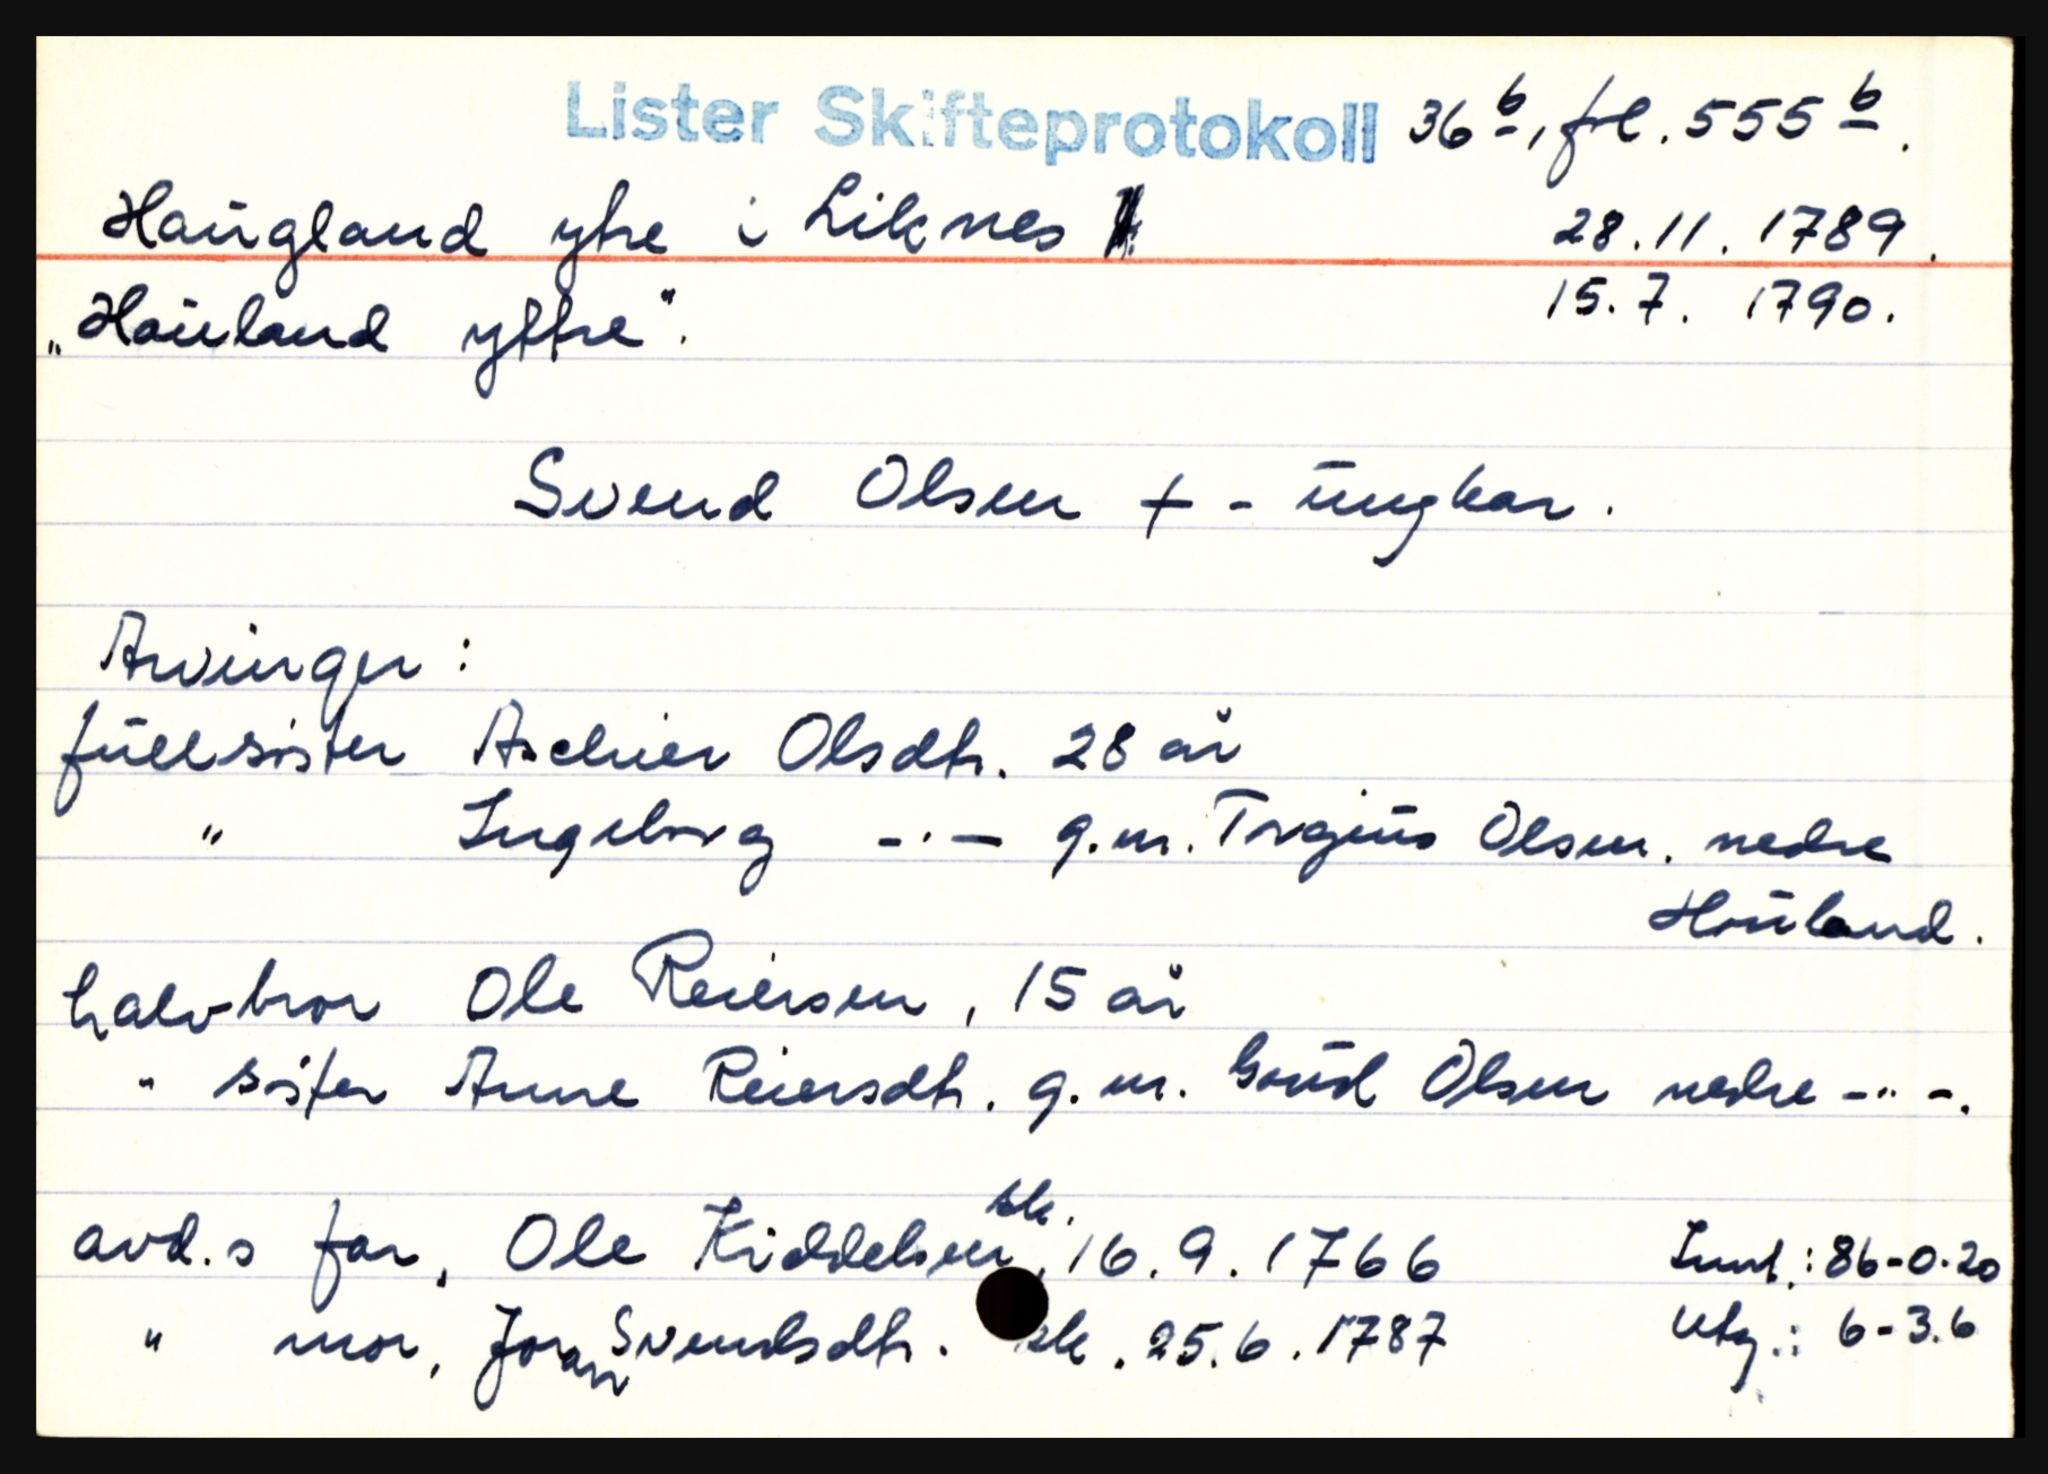 Lister Skifteprotokoll 36 b, fol. 555 b.
Haugland ytre i Liknes 28.11.1789.
"Hauland yttre". 15.7. 1790.
Svend Olsen + - ungkar.
Arvinger:
fullsister Aschier Olsdtr. 28 år
" Ingeborg -"- g.m. Trgius Olsen. nedre
Houland.
halvbror Ole Reiersen, 15 år
" sister Anne Reiersdtr. g.m. Goud Olsen nedre -"-.
avd.s far, Ole Kiddelsen, sk. 16.9.1766 Innt.: 86-0-20
" mor, Joran Svendsdtr. sk. 25.6.1787 Utg.: 6-3.6